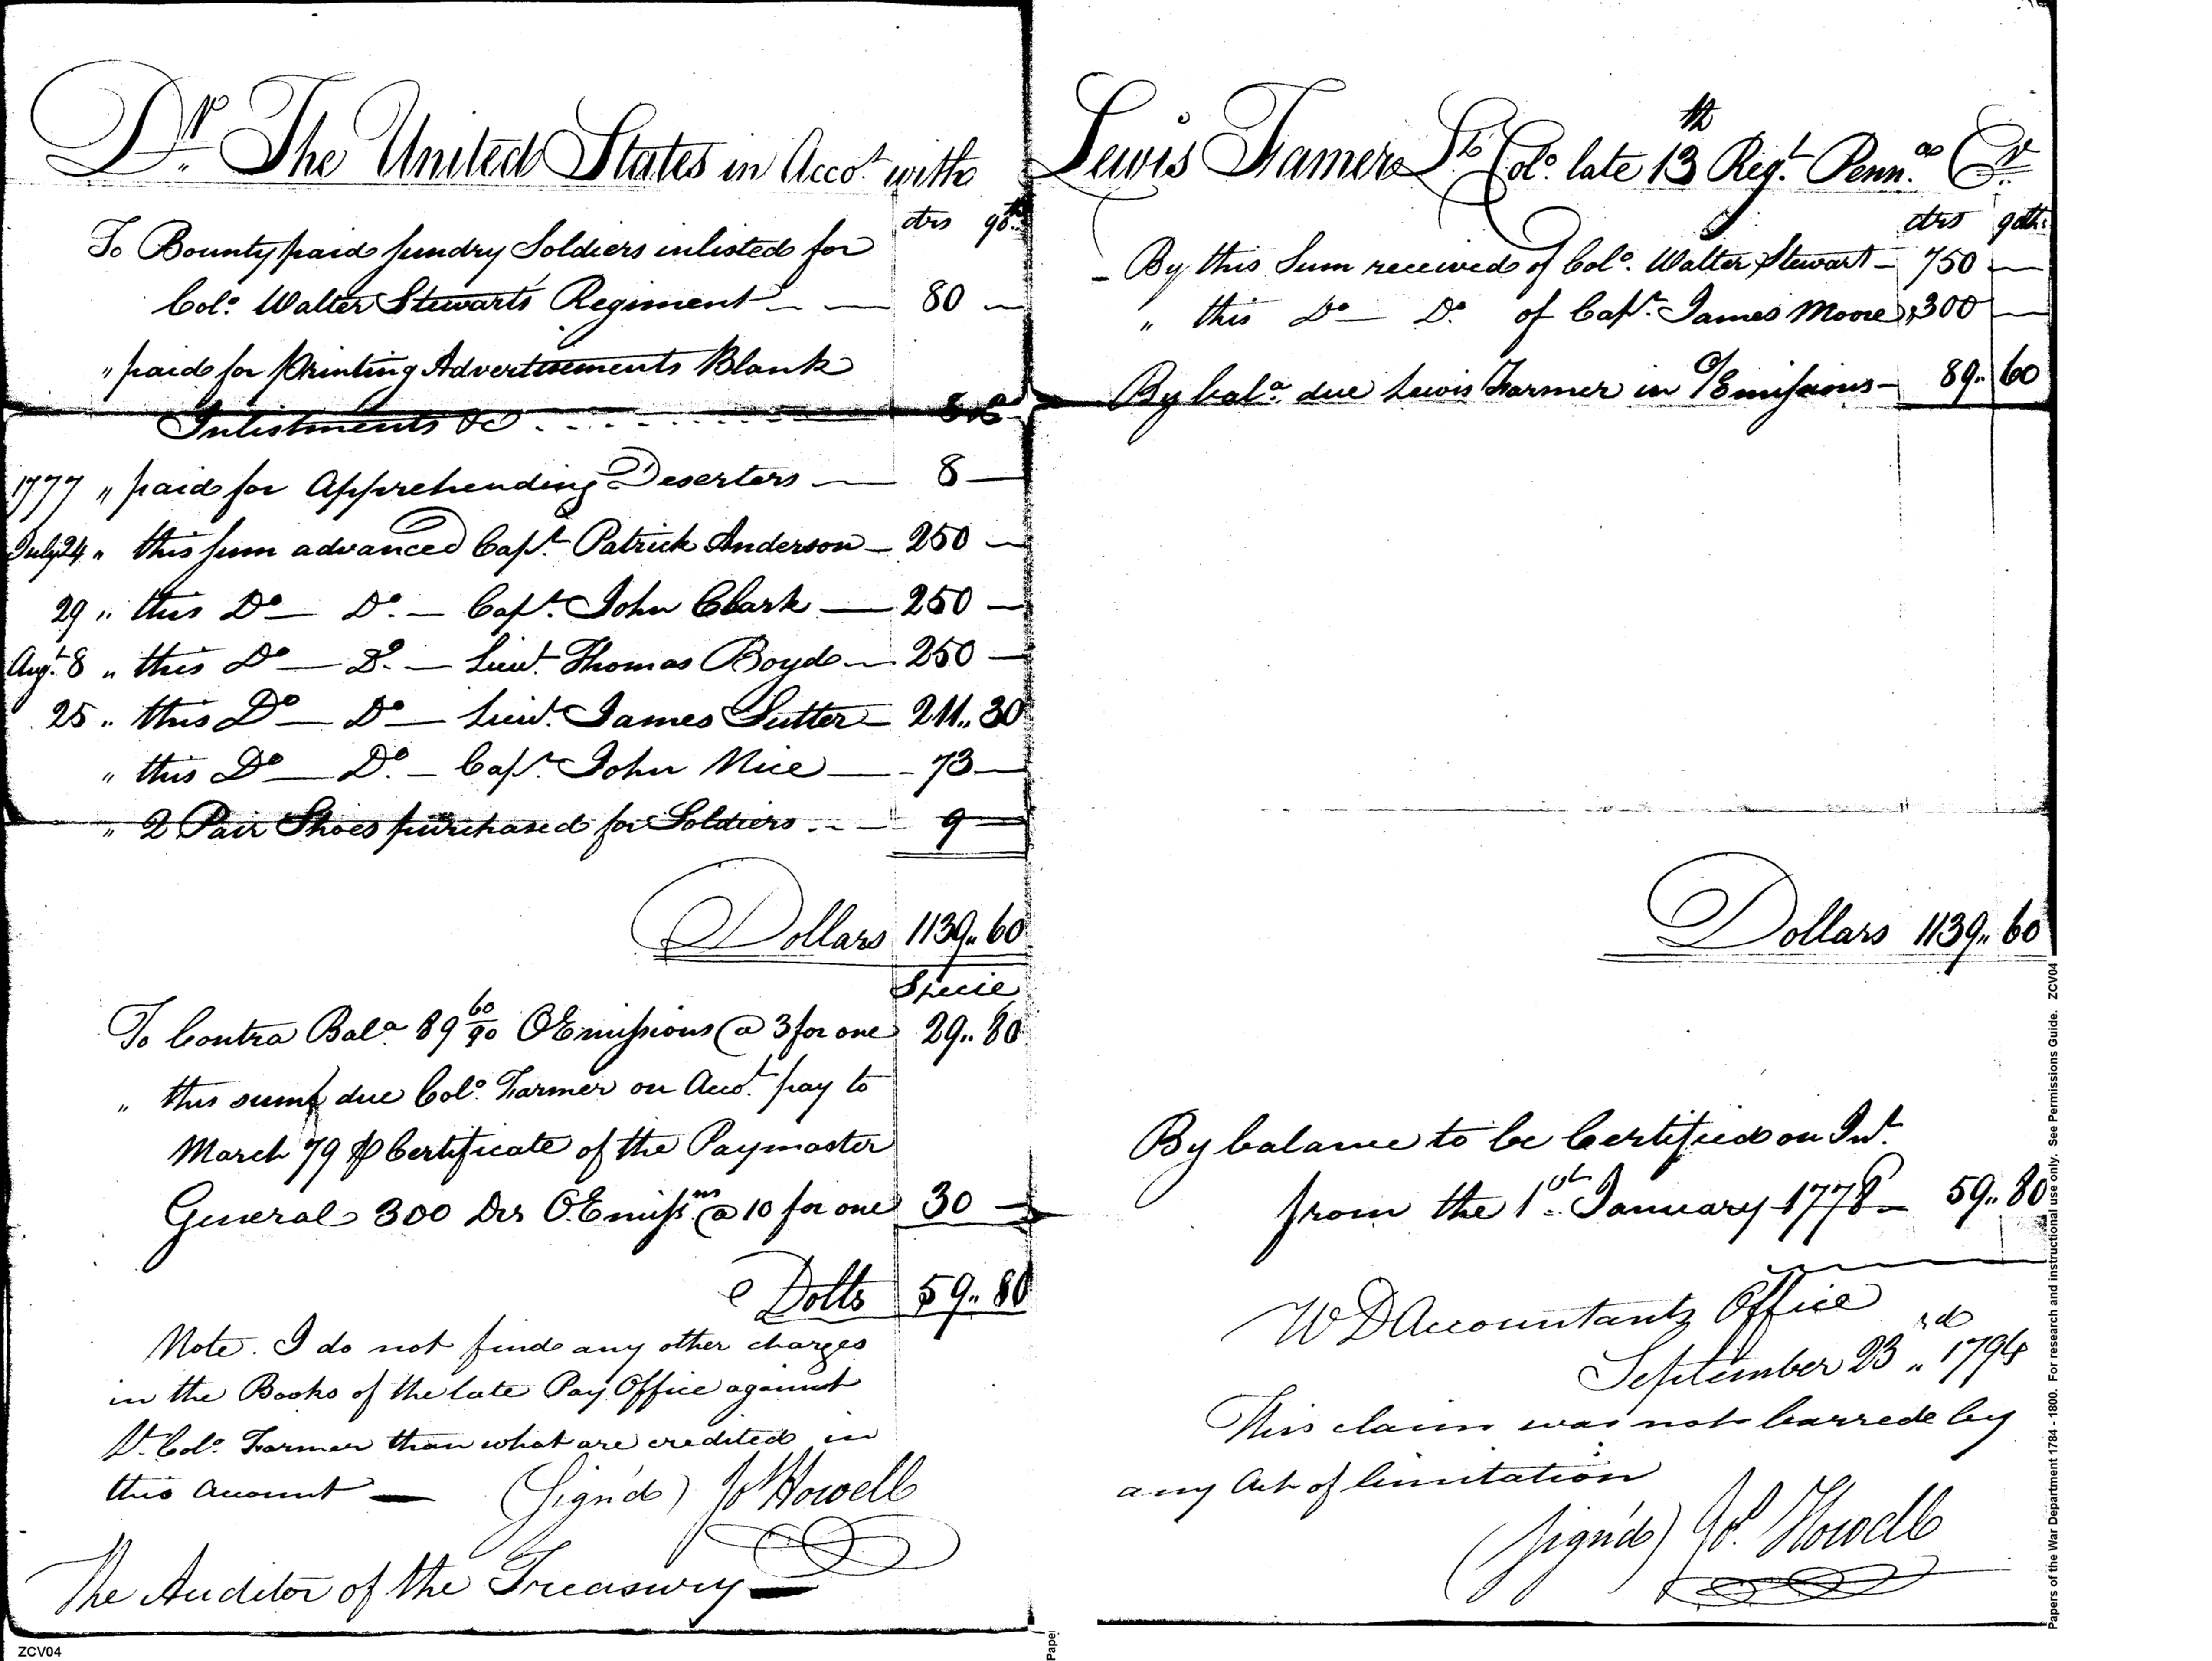 Dr. The United States in Acco.t with
drs 90ths
To Bounty paid sundry Soldiers inlisted for
Colo. Walter Stewarts Regiment — — 80 —
" paid for Printing Advertisements Blank
Inlistments &c
1777 " paid for Apprehending Deserters — 8 —
July 24 " this sum advanced Capt. Patrick Anderson — 250 —
29 " this Do — Do. — Capt. John Clark — 250 —
Augt. 8 " this Do — Do. — Lieut. Thomas Boyd — 250 —
25 " this Do — Do — Lieut. James Sutter — 211.. 30
" this Do — Do. — Capt. John Nice — 73 —
" 2 Pair Shoes purchased for Soldiers — 9 —
Dollars 1139.. 60
Specie
To Contra Bala 89 60/90 OEmissions @ 3 for one 29.. 80
" this sum due Colo. Farmer on Acco.t pay to
March 79 ⅌ Certificate of the Paymaster
General 300 Drs O.Emissns @ 10 for one 30 —
Dolls 59.. 80
Note. I do not find any other charges
in the Books of the late Pay Office against
Lt. Colo. Farmer than what are credited in
this Account — (Sign'd) Jo Howell
The Auditor of the Treasury —
ZCV04
Lewis Farmer Lt. Colo. late 13th Regt. Penn.a Cr.
drs 90ths
By this Sum received of Colo. Walter Stewart — 750 —
" this Do — Do. of Capt. James Moore 300 —
By bala. due Lewis Farmer in O/Emissions — 89.. 60
Dollars 1139.. 60
By balance to be Certified on Int.
from the 1st January 1778 — 59.. 80
W D Accountants Office
September 23rd .. 1794
This claim was not barred by
any Act of limitation
(Sign'd) Jo. Howell
Pape
Papers of the War Department 1784 - 1800. For research and instructional use only. See Permissions Guide. ZCV04